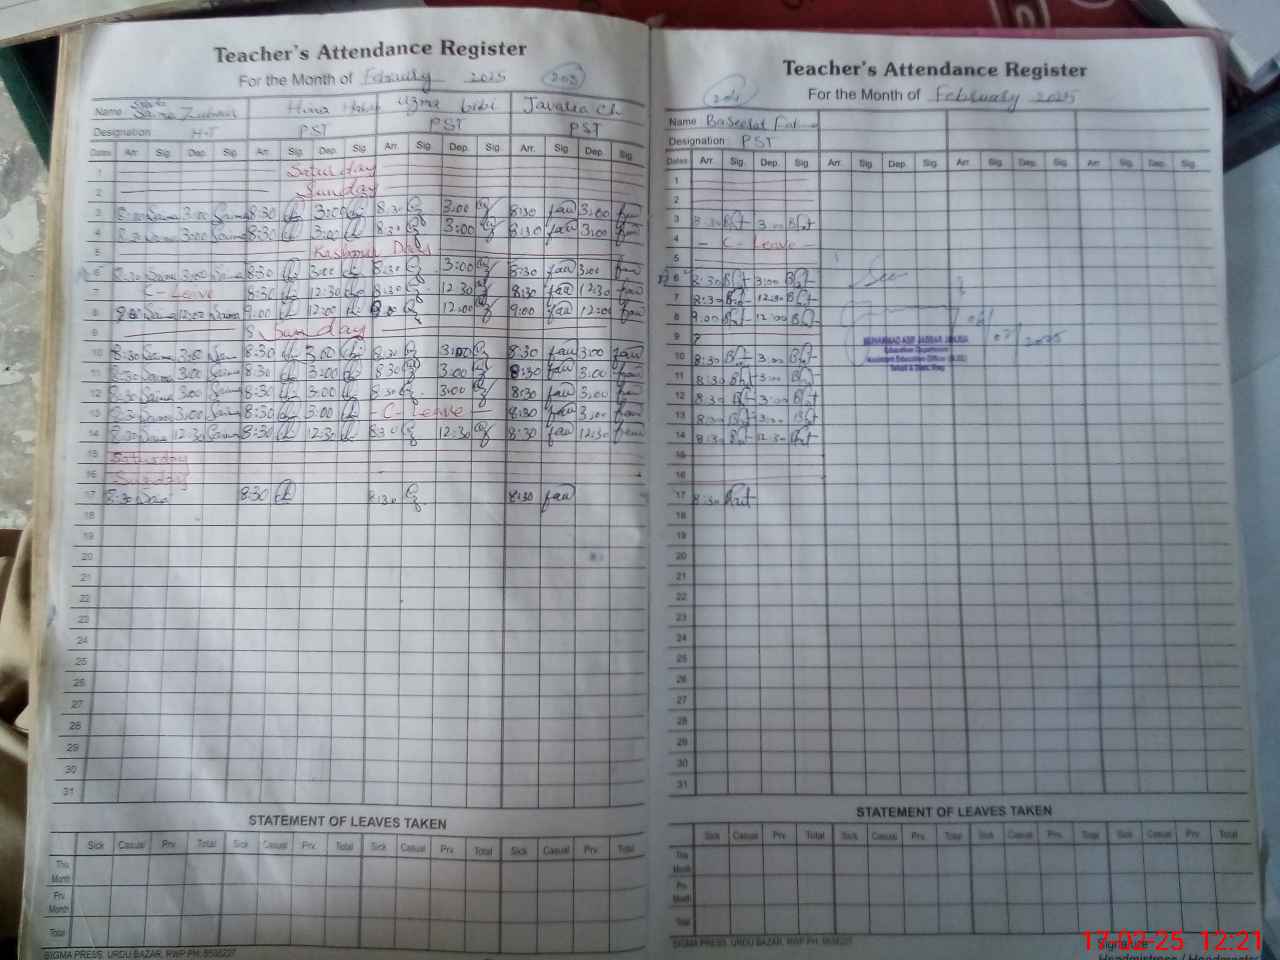 Teacher's Attendance Register
For the Month of February 2025 203
Name Saima Zubair Hina Uzma bibi Javaria Ch
Designation H-T PST PST PST
Dates Arr. Sig. Dep. Sig. Arr. Sig. Dep. Sig. Arr. Sig. Dep. Sig. Arr. Sig. Dep. Sig.
1 Saturday
2 Sunday
3 8:30 Saima 3:00 Saima 8:30 3:00 8:30 3:00 8:30 3:00
4 8:30 Saima 3:00 Saima 8:30 3:00 8:30 3:00 8:30 3:00
5 Kashmir Day
6 8:30 Saima 3:00 Saima 8:30 3:00 8:30 3:00 8:30 3:00
7 C-Leave 8:30 12:30 8:30 12:30 8:30 12:30
8 9:00 Saima 12:00 Saima 9:00 12:00 9:00 12:00 9:00 12:00
9 Sunday
10 8:30 Saima 3:00 8:30 3:00 8:30 3:00 8:30 3:00
11 8:30 Saima 3:00 Saima 8:30 3:00 8:30 3:00 8:30 3:00
12 8:30 Saima 3:00 Saima 8:30 3:00 8:30 3:00 8:30 3:00
13 8:30 Saima 3:00 Saima 8:30 3:00 - C- Leave - 8:30 3:00
14 8:30 Saima 12:30 Saima 8:30 12:30 8:30 12:30 8:30 12:30
15 Saturday
16 Sunday
17 8:30 Saima 8:30 8:30 8:30
18
19
20
21
22
23
24
25
26
27
28
29
30
31
STATEMENT OF LEAVES TAKEN
Sick Casual Prv. Total Sick Casual Prv. Total Sick Casual Prv. Total Sick Casual Prv. Total
This Month
Prv. Month
Total
SIGMA PRESS, URDU BAZAR, RWP PH: 5535227
Teacher's Attendance Register
For the Month of February 2025
204
Name Baseerat
Designation PST
Dates Arr. Sig. Dep. Sig. Arr. Sig. Dep. Sig. Arr. Sig. Dep. Sig. Arr. Sig. Dep. Sig.
1
2
3 8:30 3:00
4 - C- Leave -
5
6 8:30 3:00
7 8:30 12:30
8 9:00 12:00
9
10 8:30 3:00
11 8:30 3:00
12 8:30 3:00
13 8:30 3:00
14 8:30 12:30
15
16
17 8:30
18
19
20
21
22
23
24
25
26
27
28
29
30
31
MUHAMMAD ASIF JABBAR JANJUA
Education Department
Assistant Education Officer
2025
STATEMENT OF LEAVES TAKEN
Sick Casual Prv. Total Sick Casual Prv. Total Sick Casual Prv. Total Sick Casual Prv. Total
This Month
Prv. Month
Total
SIGMA PRESS, URDU BAZAR, RWP PH: 5535227
Signature
Headmistress / Headmaster
17-02-25 12:21